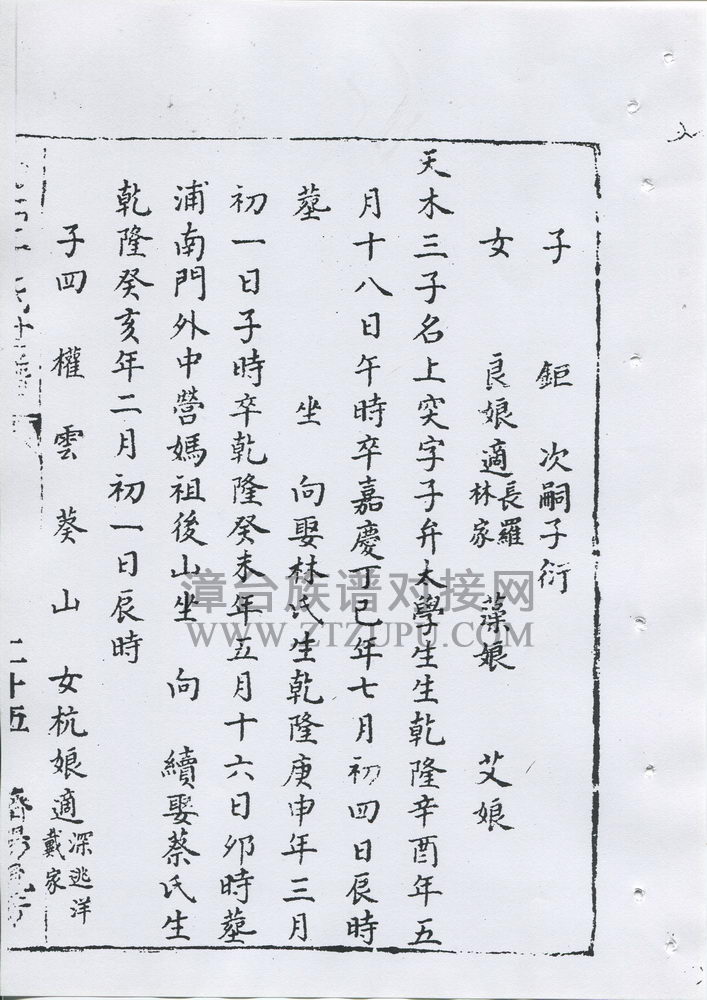 子 鉅 次嗣子衍
女 良娘適長羅林家 藻娘 艾娘
天木三子名上突字子弁太學生生乾隆辛酉年五
月十八日午時卒嘉慶丁巳年七月初四日辰時
墓 坐 向娶林氏生乾隆庚申年三月
初一日子時卒乾隆癸未年五月十六日卯時墓
浦南門外中營媽祖後山坐 向 續娶蔡氏生
乾隆癸亥年二月初一日辰時
子四 權 雲 葵 山 女杭娘適深逃洋戴家
二十五
漳台族谱对接网
WWW.ZTZUPU.COM